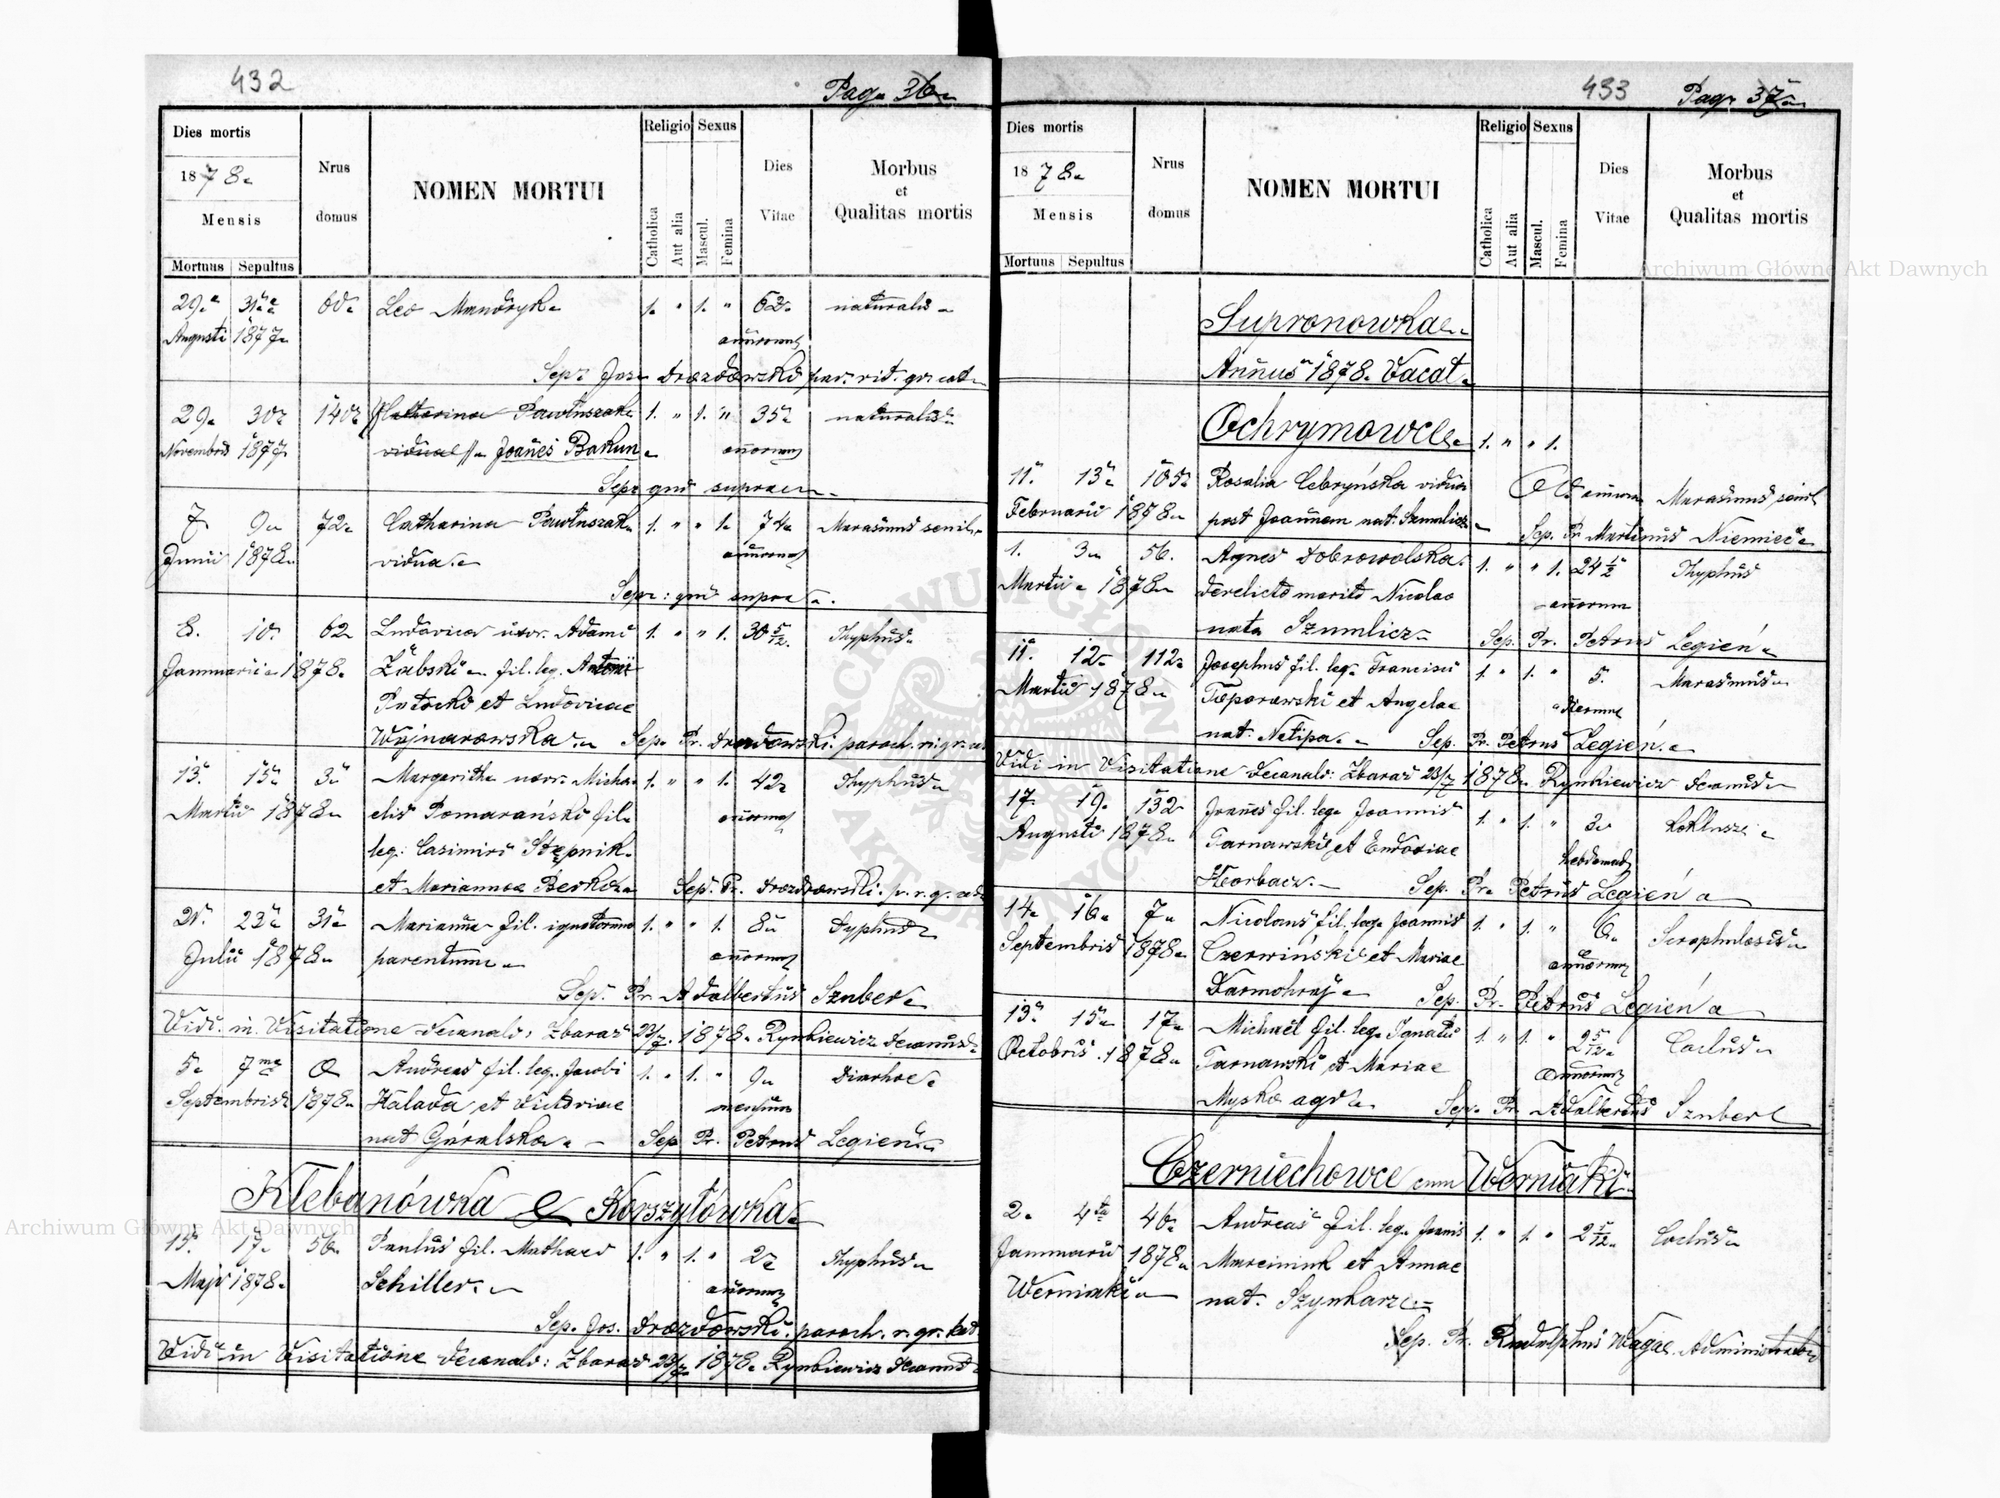 432
Pag. 36.
Dies mortis
1878.
Mensis
Mortuus Sepultus
Nrus domus
NOMEN MORTUI
Religio
Catholica
Aut alia
Sexus
Mascul.
Femina
Dies Vitae
Morbus et Qualitas mortis
29. 31. 60. Leo Mandryk. 1. " 1. " 62. naturalis
Augusti 1877. annorum
Sep. Jos. Drozdowski par. rit. gr. cat.
29. 30. 140. Catharina Pawluszak 1. " 1. " 35. naturalis
Novembris 1877. vidua Joannes Bakun annorum
Sep. qui supra
7. 9. 72. Catharina Pawluszak 1. " " 1. 74. Marasmus senil.
Junii 1878. vidua annorum
Sep.: qui supra
8. 10. 62 Ludovica uxor. Adami 1. " " 1. 30 5/12. Thyphus
Januarii 1878. Ząbski fil. leg. Antonii
Potocki et Ludovicae
Wojnarowska Sep. Pr. Drozdowski paroch. r. gr. cat
13. 15. 3. Margaritha uxor. Micha 1. " " 1. 42. Thyphus
Martii 1878. elis Pomarański fil. annorum
leg. Casimiri Stępnik
et Mariannae Berkuza Sep. Pr. Drozdowski p. r. g. cat
21. 23. 31. Marianna fil. ignotorum 1. " " 1. 8. Typhus
Julii 1878. parentum annorum
Sep. Pr. Adalbertus Szuber
Vidi in Visitatione decanali: Zbaraż 23/7. 1878. Rynkiewicz decanus
5. 7ma Andreas fil. leg. Jacobi 1. " 1. " 9. Diarhoe.
Septembris 1878. Hałada et Victoriae mensium
nat Góralska Sep Pr. Petrus Legień
Klebanówka & Korszyłówka
15. 17. 56. Paulus fil. Mathaei 1. " 1. " 2. Thyphus
Maji 1878. Schiller annorum
Sep. Jos. Drozdowski paroch. r. gr. kat.
Vidi in Visitatione decanali: Zbaraż 23/7. 1878. Rynkiewicz decanus
433
Pag. 37.
Dies mortis
1878.
Mensis
Mortuus Sepultus
Nrus domus
NOMEN MORTUI
Religio
Catholica
Aut alia
Sexus
Mascul.
Femina
Dies Vitae
Morbus et Qualitas mortis
Supronowka
Annus 1878. Vacat
Ochrymowce 1. " " 1.
11. 13. 105. Rosalia Cebryńska vidua annorum Marasmus senil
Februarii 1878. post Joannem nat. Szumlicz Sep. Pr Martinus Niemiec
1. 3. 56. Agnes Dobrowolska 1. " " 1. 24 1/2 Thyphus
Martii 1878. derelicta marito Nicolao annorum
nata Szumlicz Sep. Pr. Petrus Legień
11. 12. 112. Josephus fil. leg. Francisci 1. " 1. " 5. Marasmus
Martii 1878. Toporowski et Angelae dierum
nat. Netipa. Sep. Pr. Petrus Legień
Vidi in Visitatione decanali: Zbaraż 23/7 1878. Rynkiewicz decanus
17. 19. 132. Joannes fil. leg. Joannis 1. " 1. " 3. koklusz
Augusti 1878. Tarnawski et Eudoxiae hebdomad
Horbacz. Sep. Pr. Petrus Legień
14. 16. 7. Nicolaus fil. leg. Joannis 1. " 1. " 6. Scrophulosis
Septembris 1878. Czerwiński et Mariae annorum
Darmohraj Sep. Pr. Petrus Legień
13. 15. 17. Michael fil. leg. Ignatii 1. " 1. " 2 5/12. Coclus
Octobris 1878. Tarnawski et Mariae annorum
Myśko agr. Sep. Pr. Adalbertus Szuber
Czerniechowce cum Werniaki
2. 4ta 46. Andreas fil. leg. Joannis 1. " 1. " 2 1/12. Coclus
Januarii 1878. Marciniuk et Annae
Werniaki nat. Szynkarz
Sep. Pr. Rudolphus Wagae. Administrator
Archiwum Główne Akt Dawnych
Archiwum Główne Akt Dawnych
ARCHIWUM GŁÓWNE
AKT DAWNYCH